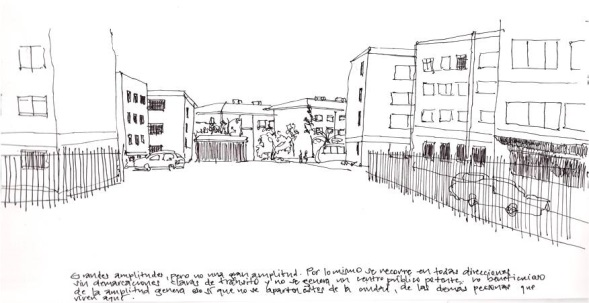 Grandes amplitudes, pero no una gran amplitud. Por lo mismo se recorre en todas direcciones,
sin demarcaciones claras de tránsito y no se genera un centro público potente, lo beneficioso
de la amplitud genera eso sí que no se aparten estos de la ciudad, de las demás personas que
viven aquí.